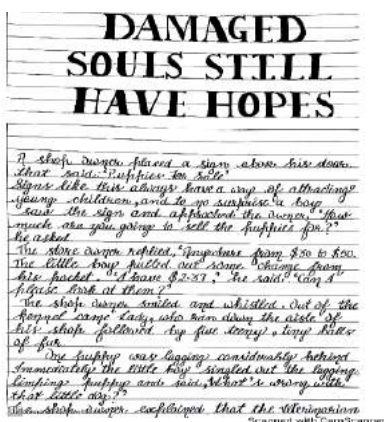 DAMAGED
SOULS STILL
HAVE HOPES
A shop owner placed a sign above his door
that said: Puppies for Sale'
Signs like this always have a way of attracting
young children, and to no surprise a boy
saw the sign and approached the owner, "How
much are you going to sell the puppies for?"
he asked.
The store owner replied, "Anywhere from $30 to $50.
The little boy pulled out some change from
his pocket. "I have $2.37", he said. "Can I
please look at them?"
The shop owner smiled and whistled. Out of the
kennel came Lady, who ran down the aisle of
his shop followed by five teeny, tiny balls
of fur.
One puppy was lagging considerably behind
Immediately the little boy singled out the lagging
limping puppy and said, What's wrong with
that little dog?"
The shop owner explained that the veterinarian
Scanned with CamScanner